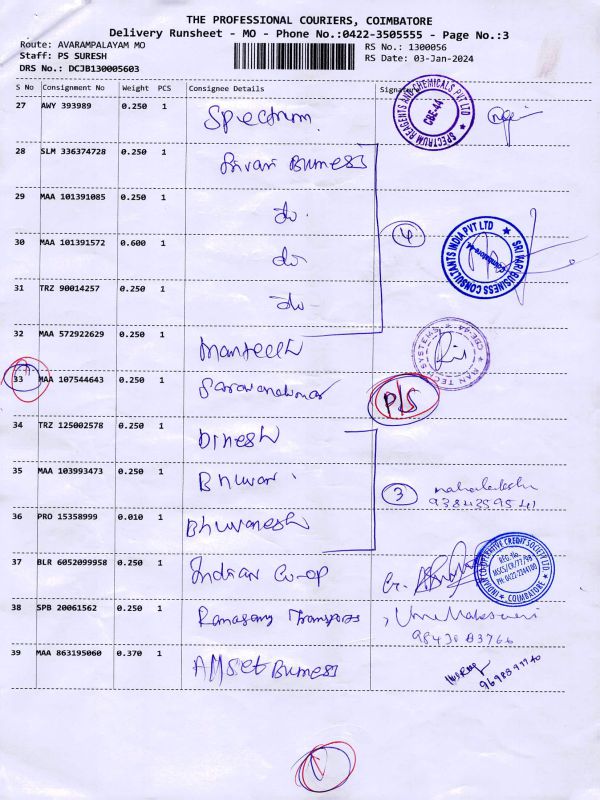 THE PROFESSIONAL COURIERS, COIMBATORE
Delivery Runsheet - MO - Phone No.:0422-3505555 - Page No.:3
Route: AVARAMPALAYAM MO
RS No.: 1300056
Staff: PS SURESH
RS Date: 03-Jan-2024
DRS No.: DCJB130005603
S No Consignment No Weight PCS Consignee Details Signature
27 AWY 393989 0.250 1 Spectrum
SPECTRUM REAGENTS AND CHEMICALS PVT LTD CBE-44
28 SLM 336374728 0.250 1 Srivari Business
29 MAA 101391085 0.250 1 do
30 MAA 101391572 0.600 1 do
4
SRI VARI BUSINESS CONSULTANTS INDIA PVT LTD Coimbatore-44
31 TRZ 90014257 0.250 1 do
32 MAA 572922629 0.250 1 Mantech
MAN TECH SYSTEMS CBE-44
33 MAA 107544643 0.250 1 Saravanakumar P/S
34 TRZ 125002578 0.250 1 Dinesh
35 MAA 103993473 0.250 1 Bhuvan
3
9384359541
36 PRO 15358999 0.010 1 Bhuvanesh
37 BLR 6052099958 0.250 1 Indian Co-op
CO-OPERATIVE CREDIT SOCIETY LTD REG.No. MSCS/CR/77/98 PH: 0422-2244100 COIMBATORE
38 SPB 20061562 0.250 1 Ramasamy Transports Uma Maheswari
9843083766
39 MAA 863195060 0.370 1 Amset Business